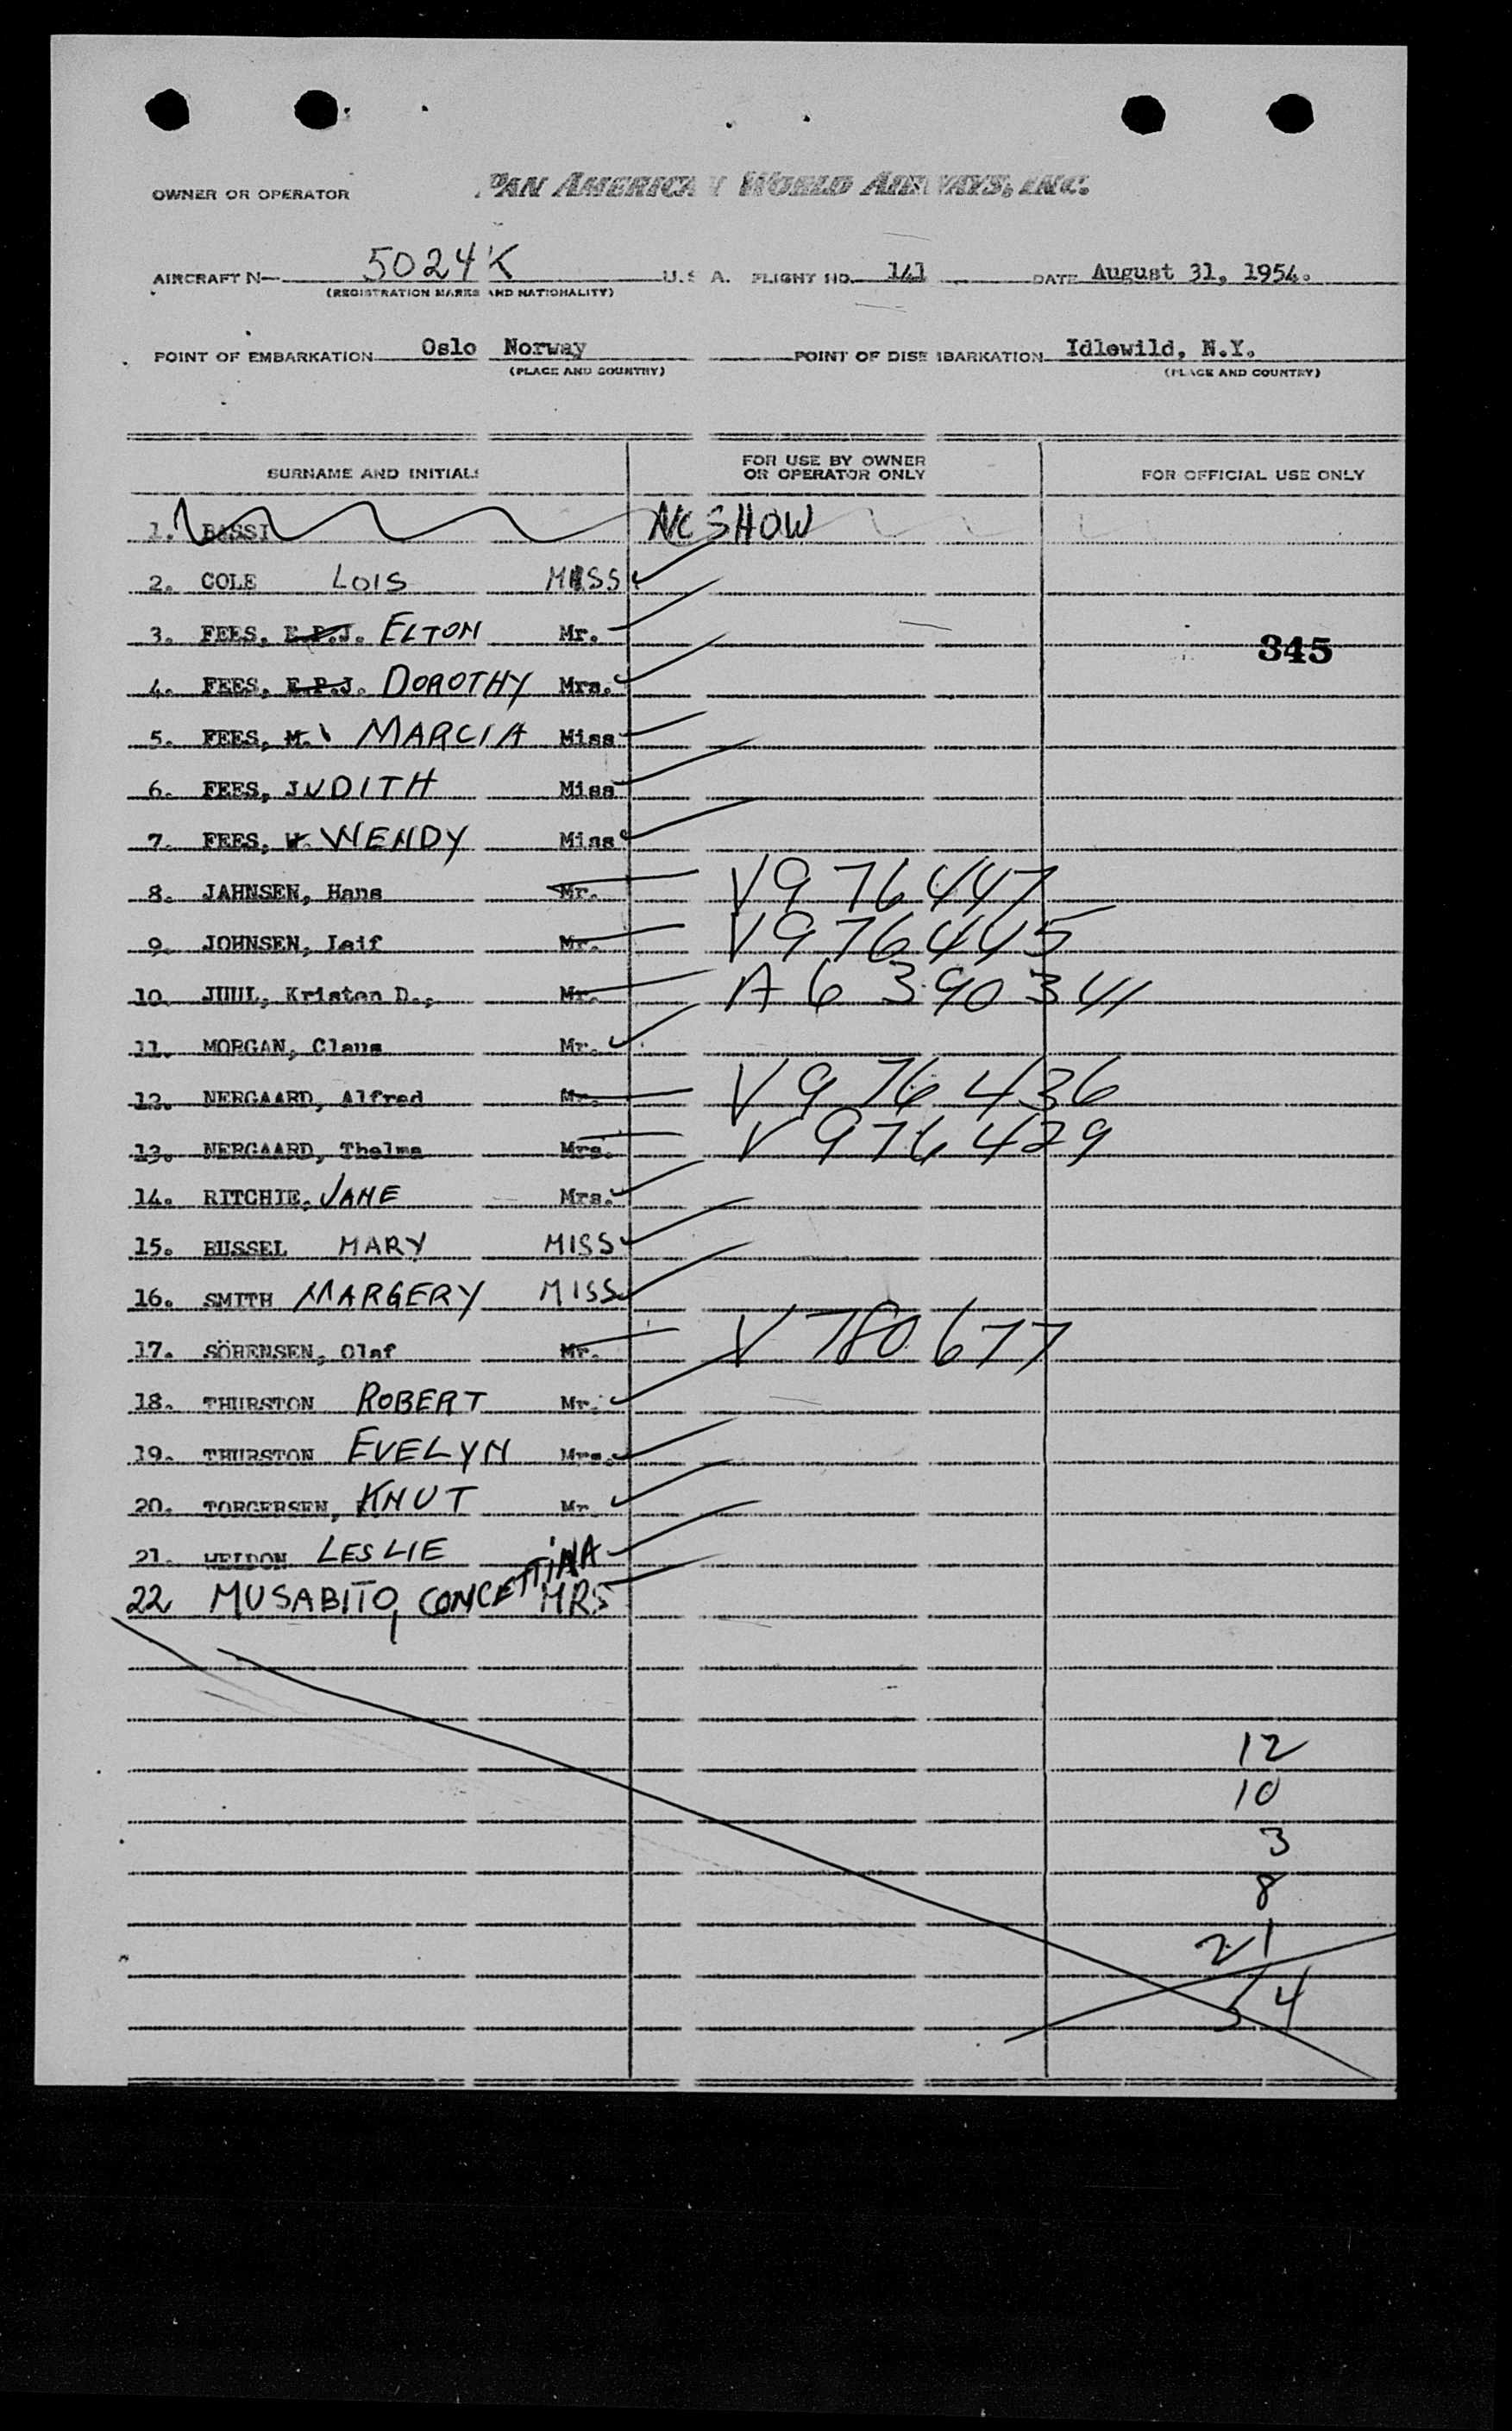 OWNER OR OPERATOR PAN AMERICAN WORLD AIRWAYS, INC.
AIRCRAFT N— 5024K U.S.A. FLIGHT NO. 141 DATE August 31, 1954.
(REGISTRATION MARKS AND NATIONALITY)
POINT OF EMBARKATION Oslo Norway POINT OF DISEMBARKATION Idlewild, N.Y.
(PLACE AND COUNTRY) (PLACE AND COUNTRY)
SURNAME AND INITIALS FOR USE BY OWNER OR OPERATOR ONLY FOR OFFICIAL USE ONLY
1. BASSI NO SHOW
2. COLE LOIS MISS
3. FEES, E.P.J. ELTON Mr.
345
4. FEES, E.P.J. DOROTHY Mrs.
5. FEES, M. MARCIA Miss
6. FEES, JUDITH Miss
7. FEES, W. WENDY Miss
8. JAHNSEN, Hans Mr. V976447
9. JOHNSEN, Leif Mr. V976445
10. JUUL, Kristen D., Mr. A6390341
11. MORGAN, Claus Mr.
12. NERGAARD, Alfred Mr. V976436
13. NERGAARD, Thelma Mrs. V976429
14. RITCHIE, JANE Mrs.
15. RUSSEL MARY MISS
16. SMITH MARGERY MISS
17. SÖRENSEN, Olaf Mr. V780677
18. THURSTON ROBERT Mr.
19. THURSTON EVELYN Mrs.
20. TORGERSEN, KNUT Mr.
21. WELDON LESLIE
22 MUSABITO, CONCETTINA MRS
12
10
3
8
21
54